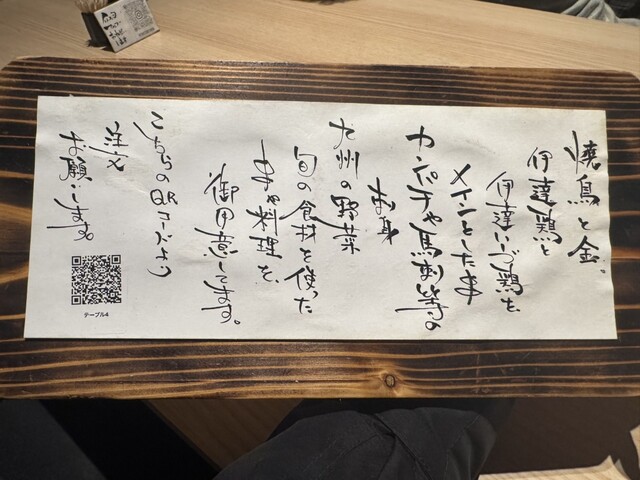 焼鳥と金。
伊達鶏と
伊達いづ鶏を
メインとした串
カンパチや馬刺等の
お身
九州の野菜
旬の食材を使った
料理を、
御用意してます。
こちらのQRコードより
注文
お願いします。
テーブル4